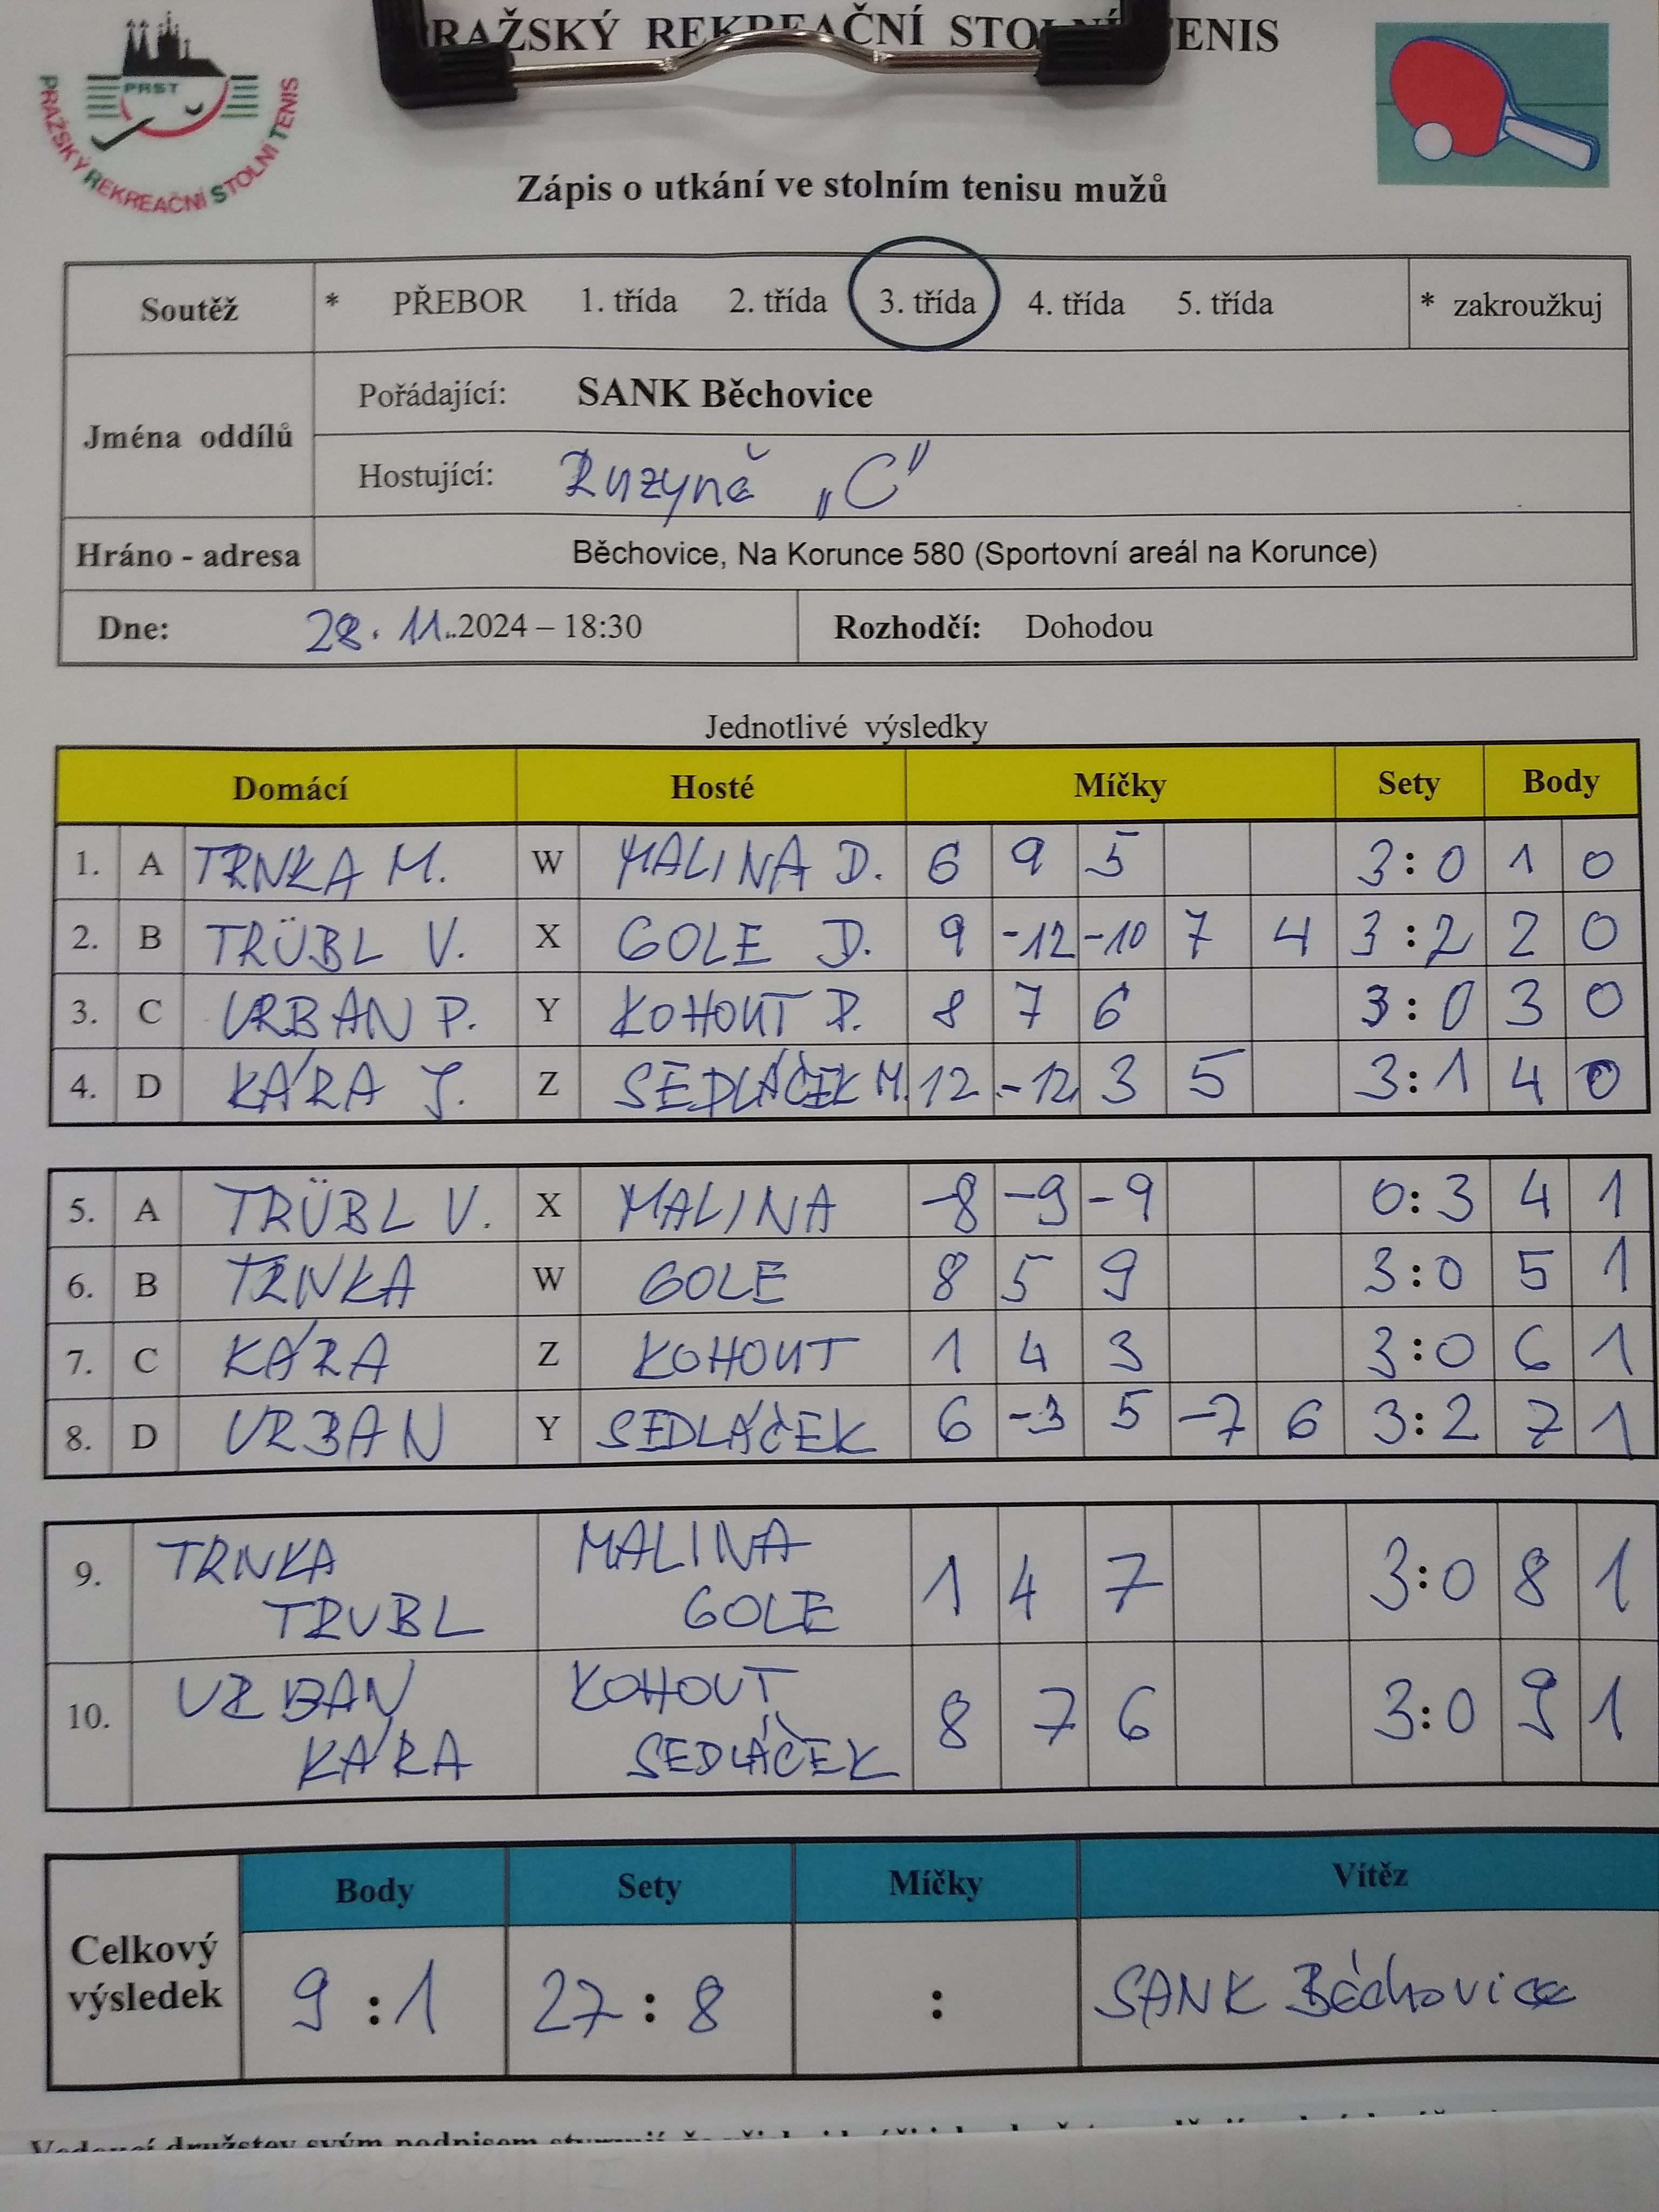 RAŽSKÝ REKREAČNÍ STOLNÍ TENIS
PRST
PRAŽSKÝ REKREAČNÍ STOLNÍ TENIS
Zápis o utkání ve stolním tenisu mužů
Soutěž * PŘEBOR 1. třída 2. třída 3. třída 4. třída 5. třída * zakroužkuj
Jména oddílů
Pořádající: SANK Běchovice
Hostující: Ruzyně „C"
Hráno - adresa Běchovice, Na Korunce 580 (Sportovní areál na Korunce)
Dne: 28. 11..2024 – 18:30 Rozhodčí: Dohodou
Jednotlivé výsledky
Domácí Hosté Míčky Sety Body
1. A TRNKA M. W MALINA D. 6 9 5 3:0 1 0
2. B TRÜBL V. X GOLE D. 9 -12 -10 7 4 3:2 2 0
3. C URBAN P. Y KOHOUT P. 8 7 6 3:0 3 0
4. D KÁRA J. Z SEDLÁČEK M. 12 -12 3 5 3:1 4 0
5. A TRÜBL V. X MALINA -8 -9 -9 0:3 4 1
6. B TRNKA W GOLE 8 5 9 3:0 5 1
7. C KÁRA Z KOHOUT 1 4 3 3:0 6 1
8. D URBAN Y SEDLÁČEK 6 -3 5 -7 6 3:2 7 1
9. TRNKA MALINA 1 4 7 3:0 8 1
TRUBL GOLE
10. URBAN KOHOUT 8 7 6 3:0 9 1
KÁRA SEDLÁČEK
Celkový výsledek
Body Sety Míčky Vítěz
9 : 1 27 : 8 : SANK Běchovice